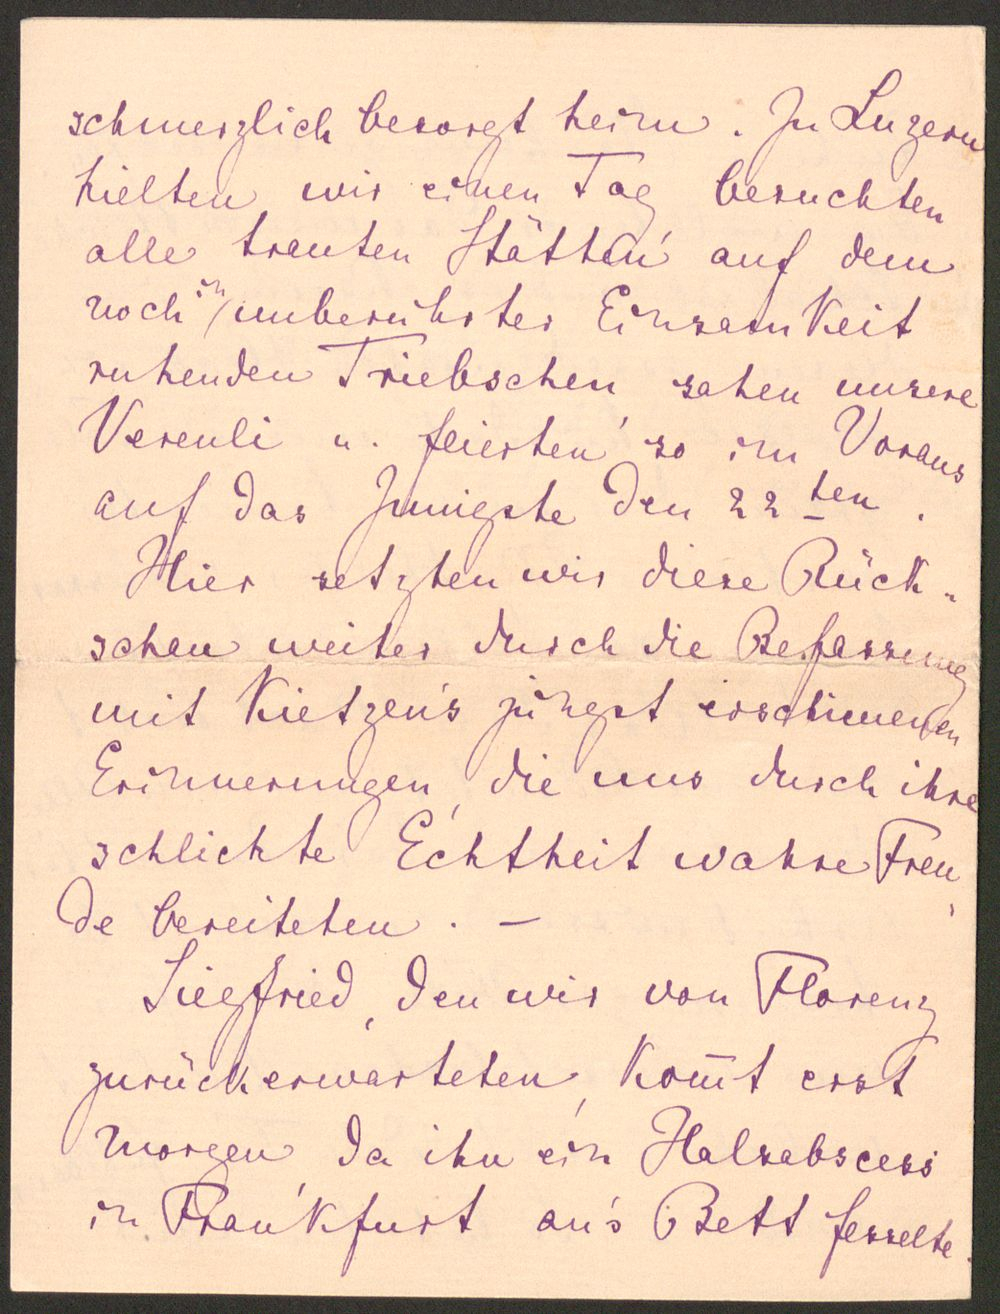 schmerzlich besorgt heim. In Luzern
hielten wir einen Tag besuchten
alle trauten Stätten auf dem
noch in unberührter Einsamkeit
ruhenden Triebschen, sahen unsere
Vreneli u. feierten so im Voraus
auf das Innigste den 22ten.
Hier setzten wir diese Rück-
schau weiter durch die Befassung
mit Kietzen's jüngst erschienenen
Erinnerungen, die uns durch ihre
schlichte Echtheit wahre Freu-
de bereiteten. —
Siegfried, den wir von Florenz
zurückerwarteten, kom̄t erst
morgen, da ihn ein Halsabscess
in Frankfurt an's Bett fesselte.